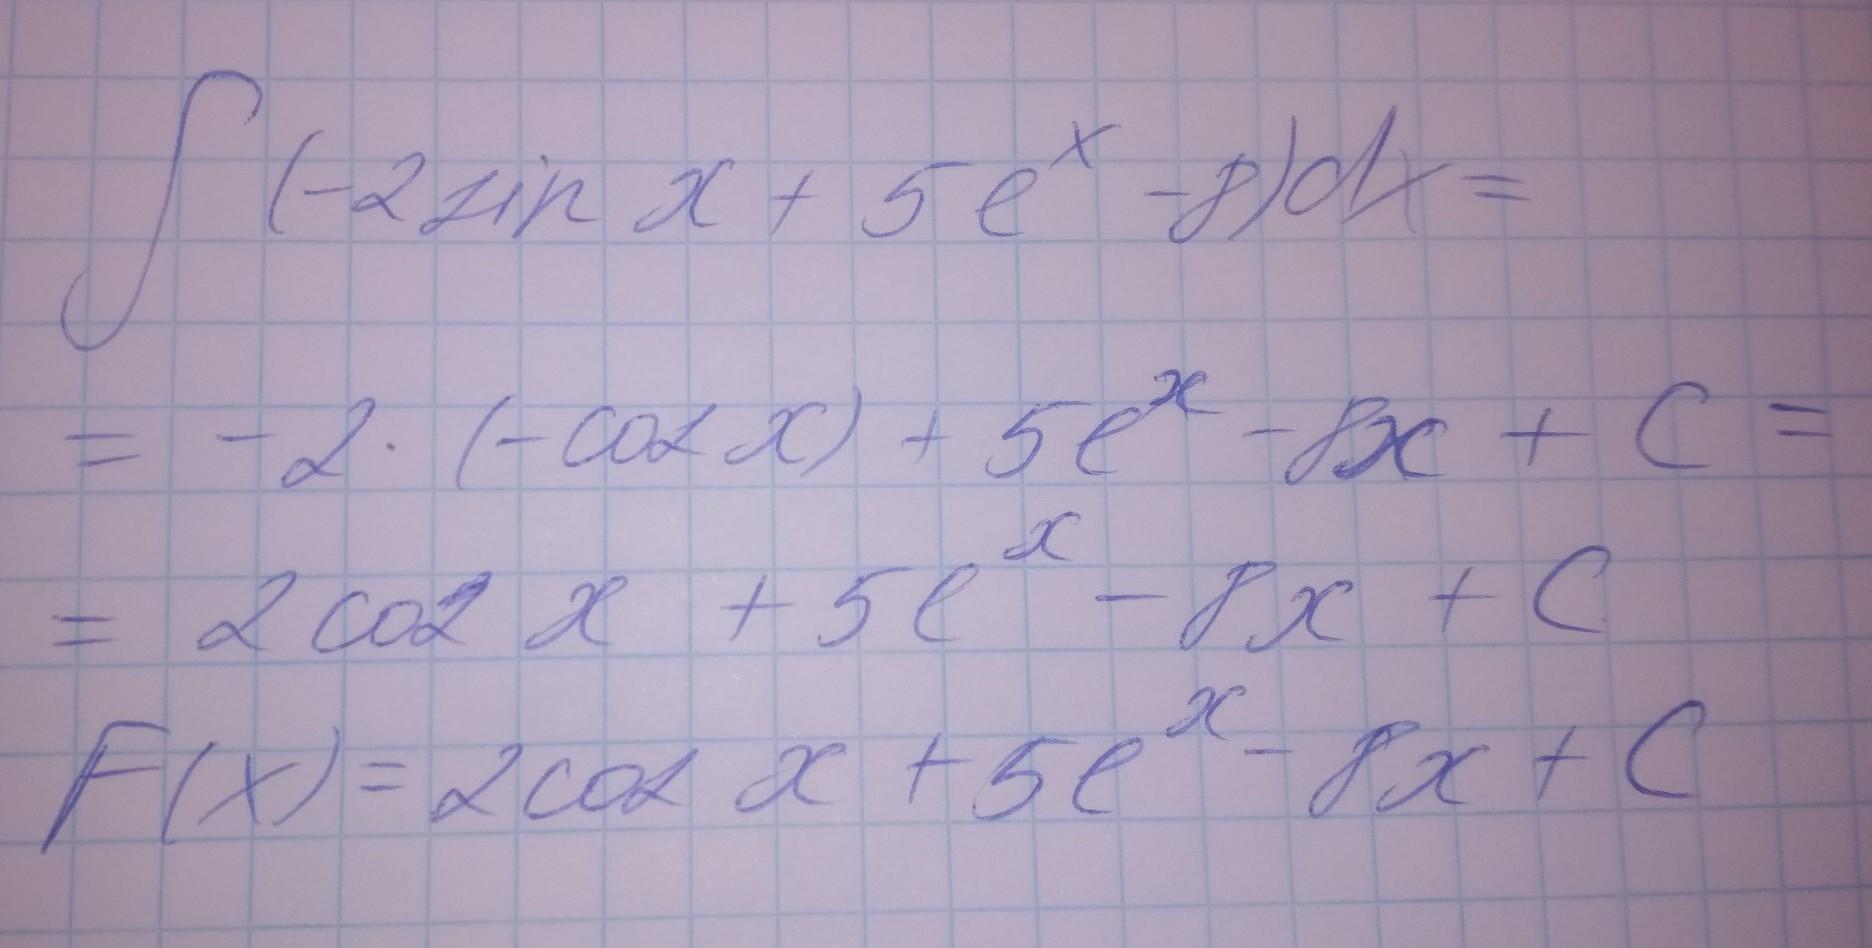 ∫(-2sin x + 5e^x - 8)dx =
= -2 · (-cos x) + 5e^x - 8x + C =
= 2cos x + 5e^x - 8x + C
F(x) = 2cos x + 5e^x - 8x + C